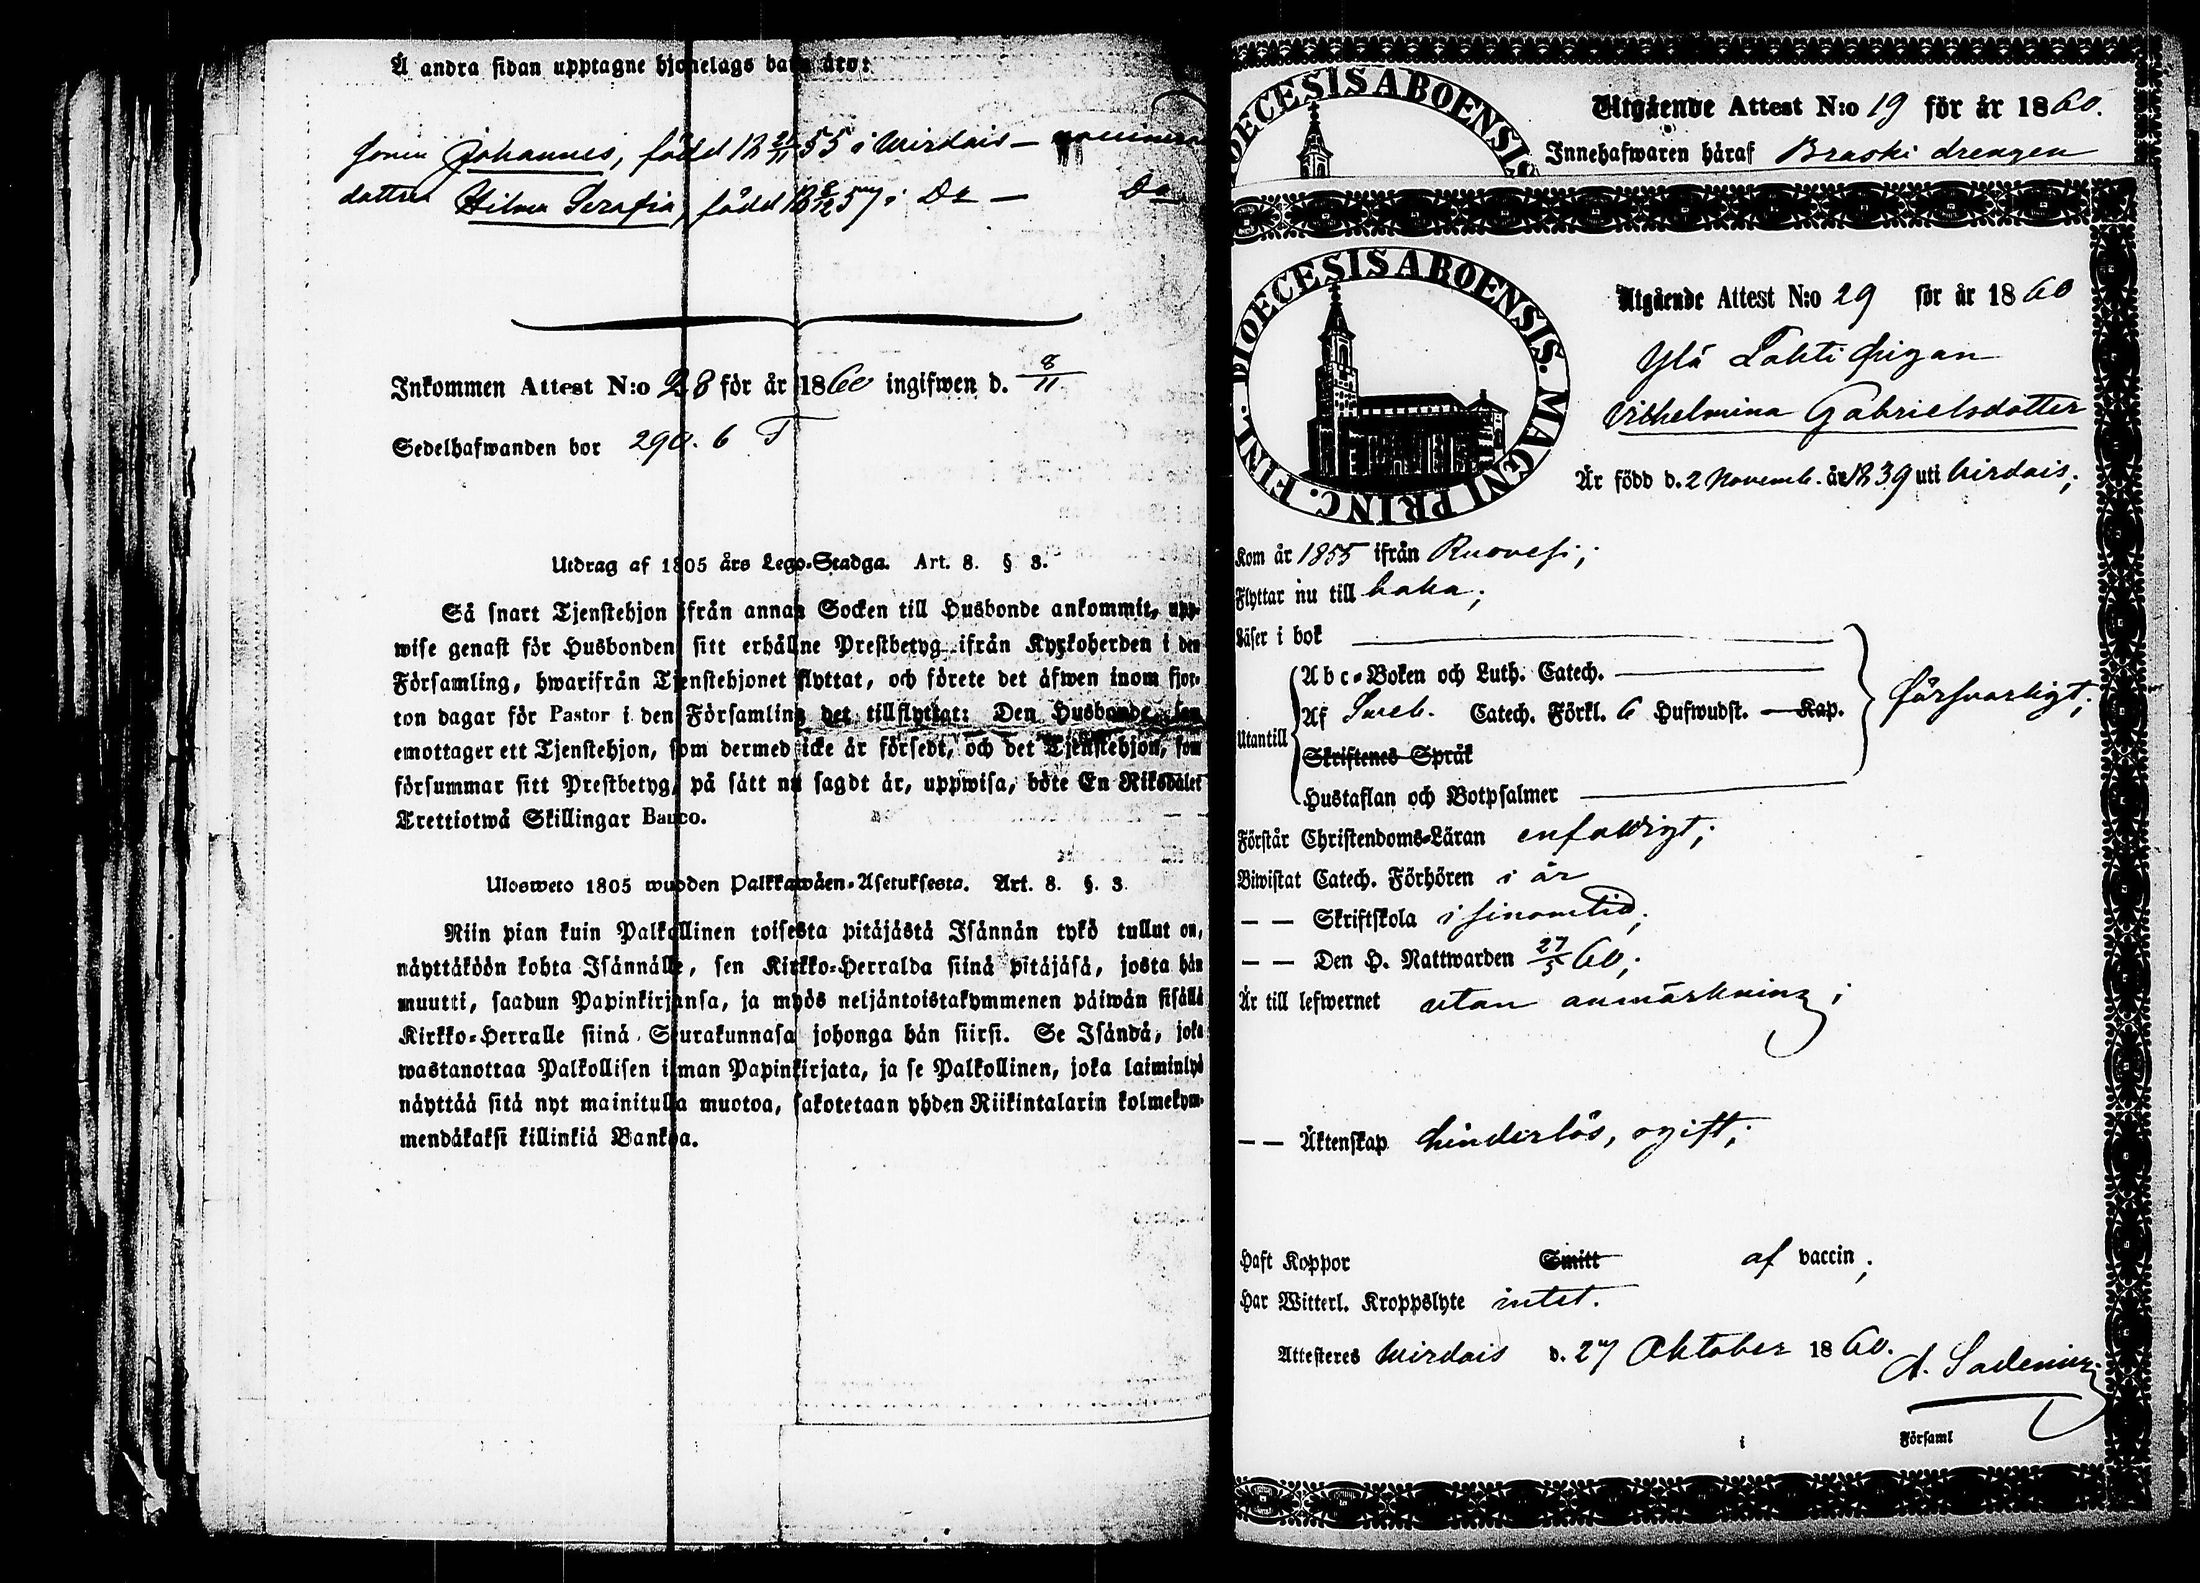 Å andra sidan upptagne hjonelags barn äro:
sonen Johannes, född 18 55 i Wirdois —
dottren Hilma Serafia, född 18 8/12 57 i Do — Do
Inkommen Attest N:o 28 för år 1860 ingifwen d. 8/11
Sedelhafwanden bor 290. 6 T
Utdrag af 1805 års Lego-Stadga. Art. 8. § 3.
Så snart Tjenstehjon ifrån annan Socken till Husbonde ankommit, upp-
wise genast för Husbonden sitt erhållne Prestbetyg ifrån Kyrkoherden i den
Församling, hwarifrån Tjenstehjonet flyttat, och förete det äfwen inom fjor-
ton dagar för Pastor i den Församling det tillflyttat: Den Husbonde, som
emottager ett Tjenstehjon, som dermed icke är försedt, och det Tjenstehjon, som
försummar sitt Prestbetyg, på sätt nu sagdt är, uppwisa, böte En Riksdaler
Trettiotwå Skillingar Banco.
Ulosweto 1805 wuoden Palkkawäen-Asetuksesta. Art. 8. §. 3.
Niin pian kuin Palkollinen toisesta pitäjästä Isännän tykö tullut on,
näyttäköön kohta Isännälle, sen Kirkko-Herralda siinä pitäjäsä, josta hän
muutti, saadun Papinkirjansa, ja myös neljäntoistakymmenen päiwän sisällä
Kirkko-Herralle siinä Seurakunnasa johonga hän siirsi. Se Isändä, joka
wastanottaa Palkollisen ilman Papinkirjata, ja se Palkollinen, joka laiminlyö
näyttää sitä nyt mainitulla muotoa, sakotetaan yhden Riikintalarin kolmekym-
mendäkaksi killinkiä Bankoa.
DIOECESIS ABOENSIS
Utgående Attest N:o 19 för år 1860.
Innehafwaren häraf Braski drengen
DIOECESIS ABOENSIS. MAGNI PRINC. FINL.
Utgående Attest N:o 29 för år 1860
Ylä Lahti pigan
Vilhelmina Gabrielsdotter
Är född d. 2 Novemb. år 1839 uti Virdois;
Kom år 1855 ifrån Ruovesi;
Flyttar nu till
Läser i bok
Utantill
Abc-Boken och Luth. Catech.
Af Sweb. Catech. Förkl. 6 Hufwudst. — Kap.
försvarligt;
Skriftenes Språk
Hustaflan och Botpsalmer
Förstår Christendoms-Läran enfaldigt;
Biwistat Catech. Förhören i år
— — Skriftskola i sinom tid;
— — Den H. Nattwarden 27/5 60;
Är till lefwernet utan anmärkning;
— — Äktenskap hinderlös, ogift;
Haft Koppor Smitt af vaccin;
Har Witterl. Kroppslyte intet.
Attesteres Wirdois d. 27 Oktober 1860.
A. Sadenius
i Församl